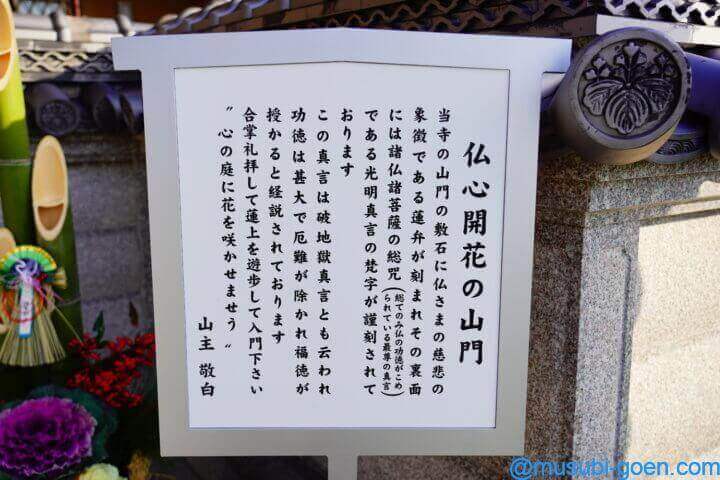 仏心開花の山門
当寺の山門の敷石に仏さまの慈悲の
象徴である蓮弁が刻まれその裏面
には諸仏諸菩薩の総咒(総てのみ仏の功徳がこめられている最尊の真言)
である光明真言の梵字が謹刻されて
おります
この真言は破地獄真言とも云われ
功徳は甚大で厄難が除かれ福徳が
授かると経説されております
合掌礼拝して蓮上を遊歩して入門下さい
〝心の庭に花を咲かせませう〟
山主 敬白
@musubi-goen.com